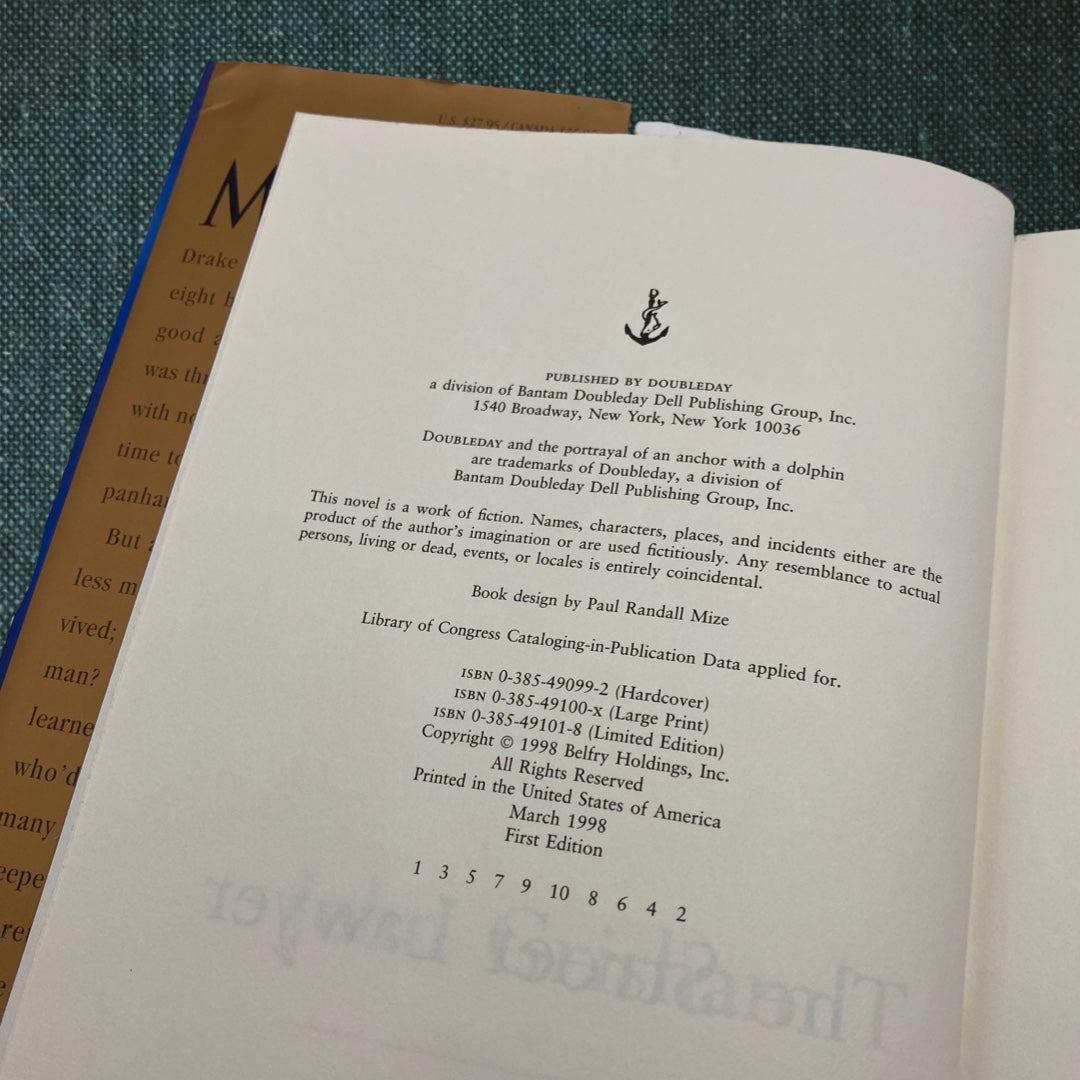 U.S. $27.95 / CANADA
M
Drake
eight
good
was
with
time
But
less
vived;
man?
who'd
many
PUBLISHED BY DOUBLEDAY
a division of Bantam Doubleday Dell Publishing Group, Inc.
1540 Broadway, New York, New York 10036
DOUBLEDAY and the portrayal of an anchor with a dolphin
are trademarks of Doubleday, a division of
Bantam Doubleday Dell Publishing Group, Inc.
This novel is a work of fiction. Names, characters, places, and incidents either are the
product of the author's imagination or are used fictitiously. Any resemblance to actual
persons, living or dead, events, or locales is entirely coincidental.
Book design by Paul Randall Mize
Library of Congress Cataloging-in-Publication Data applied for.
ISBN 0-385-49099-2 (Hardcover)
ISBN 0-385-49100-x (Large Print)
ISBN 0-385-49101-8 (Limited Edition)
Copyright © 1998 Belfry Holdings, Inc.
All Rights Reserved
Printed in the United States of America
March 1998
First Edition
1 3 5 7 9 10 8 6 4 2
The Street Lawyer